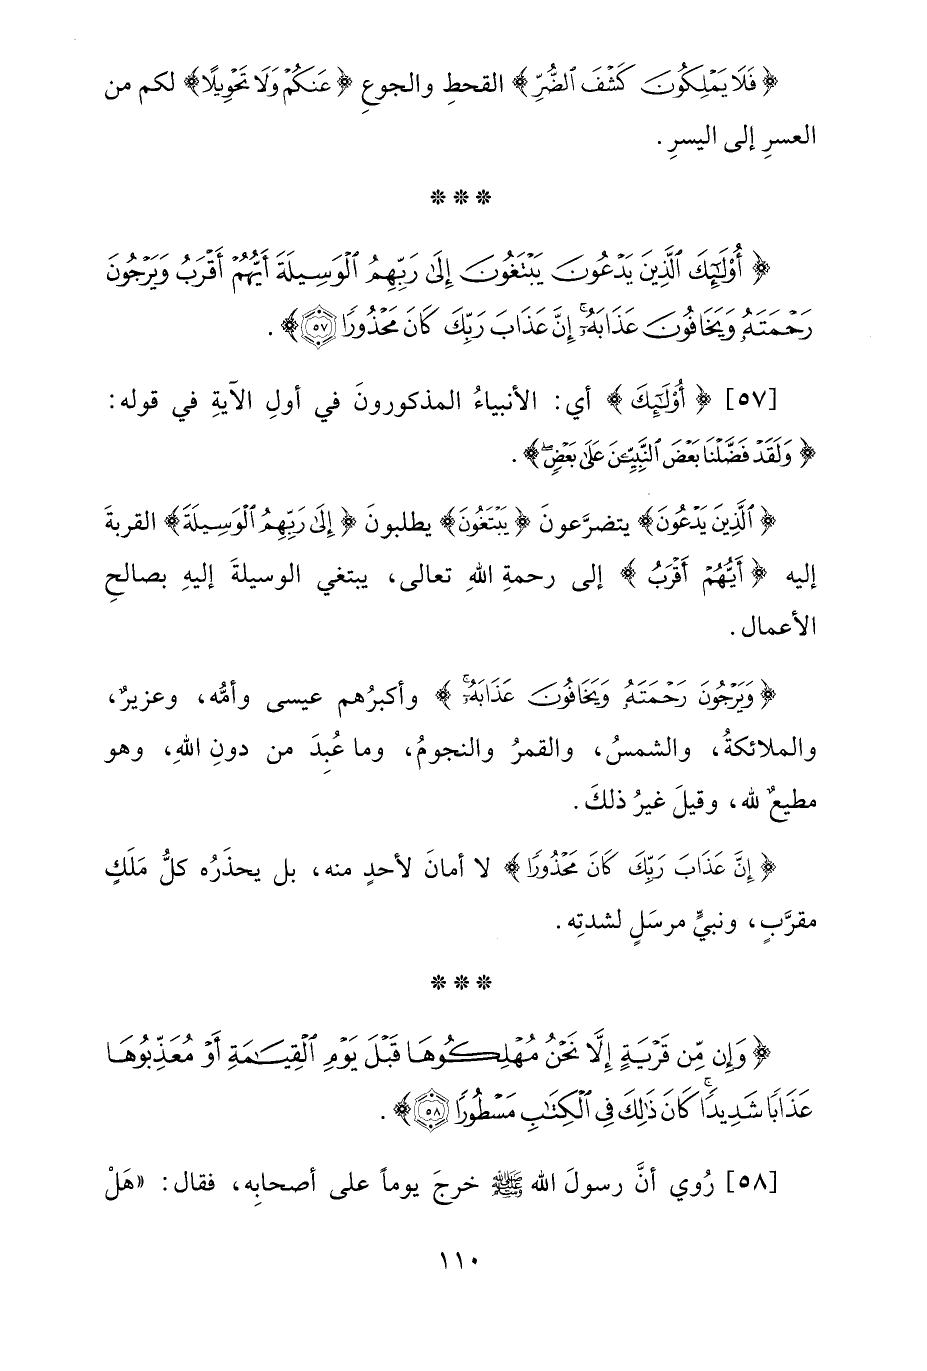 ﴿ فَلَا يَمْلِكُونَ كَشْفَ ٱلضُّرِّ ﴾ القحطِ والجوعِ ﴿ عَنكُمْ وَلَا تَحْوِيلًا ﴾ لكم من
العسرِ إلى اليسرِ .
* * *
﴿ أُوْلَٰٓئِكَ ٱلَّذِينَ يَدْعُونَ يَبْتَغُونَ إِلَىٰ رَبِّهِمُ ٱلْوَسِيلَةَ أَيُّهُمْ أَقْرَبُ وَيَرْجُونَ
رَحْمَتَهُۥ وَيَخَافُونَ عَذَابَهُۥٓۚ إِنَّ عَذَابَ رَبِّكَ كَانَ مَحْذُورًا ۝٥٧ ﴾ .
[٥٧] ﴿ أُوْلَٰٓئِكَ ﴾ أي: الأنبياءُ المذكورونَ في أولِ الآيةِ في قوله:
﴿ وَلَقَدْ فَضَّلْنَا بَعْضَ ٱلنَّبِيِّـۧنَ عَلَىٰ بَعْضٍۖ ﴾ .
﴿ ٱلَّذِينَ يَدْعُونَ ﴾ يتضرَّعونَ ﴿ يَبْتَغُونَ ﴾ يطلبونَ ﴿ إِلَىٰ رَبِّهِمُ ٱلْوَسِيلَةَ ﴾ القربةَ
إليه ﴿ أَيُّهُمْ أَقْرَبُ ﴾ إلى رحمةِ اللهِ تعالى، يبتغي الوسيلةَ إليهِ بصالحِ
الأعمال .
﴿ وَيَرْجُونَ رَحْمَتَهُۥ وَيَخَافُونَ عَذَابَهُۥٓۚ ﴾ وأكبرُهم عيسى وأمُّه، وعزيرٌ،
والملائكةُ، والشمسُ، والقمرُ والنجومُ، وما عُبِدَ من دونِ اللهِ، وهو
مطيعٌ لله، وقيلَ غيرُ ذلكَ .
﴿ إِنَّ عَذَابَ رَبِّكَ كَانَ مَحْذُورًا ﴾ لا أمانَ لأحدٍ منه، بل يحذَرُه كلُّ مَلَكٍ
مقرَّبٍ، ونبيٍّ مرسَلٍ لشدتِه .
* * *
﴿ وَإِن مِّن قَرْيَةٍ إِلَّا نَحْنُ مُهْلِكُوهَا قَبْلَ يَوْمِ ٱلْقِيَٰمَةِ أَوْ مُعَذِّبُوهَا
عَذَابًا شَدِيدًاۚ كَانَ ذَٰلِكَ فِى ٱلْكِتَٰبِ مَسْطُورًا ۝٥٨ ﴾ .
[٥٨] رُوي أنَّ رسولَ الله ﷺ خرجَ يوماً على أصحابِه، فقال: «هَلْ
١١٠